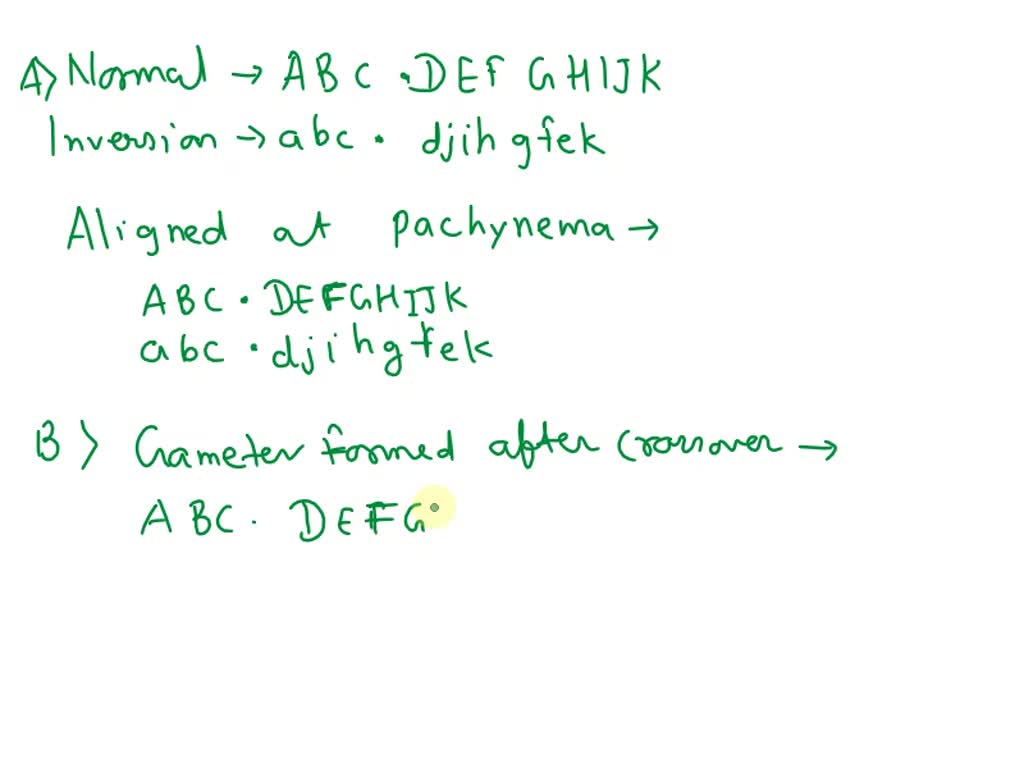 A> Normal → ABC .DEFGHIJK
Inversion → abc. djihgfek
Aligned at pachynema →
ABC.DEFGHIJK
abc.djihgfek
B> Gameter formed after Crossover →
ABC. DEFG